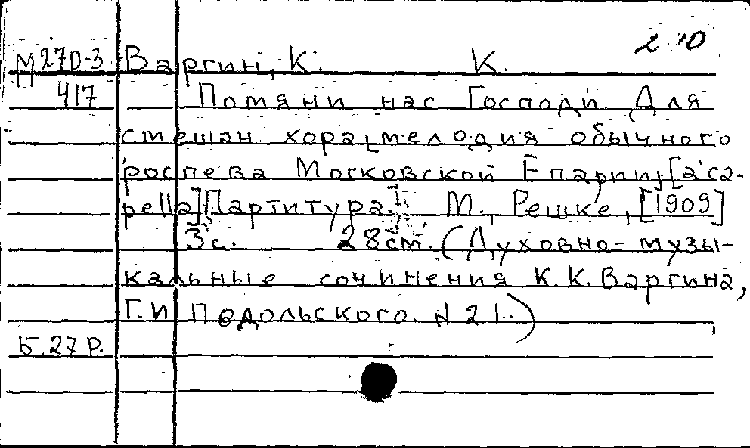 2 70
М27D-3 Варгин, К. К.
417 Помяни нас Господи. Для
смешан хора, мелодия обычного
роспева Московской Епарии, [a'ca-
pella] [Партитура]. М., Решке, [1909]
3с. 28см. (Духовно-музы-
кальные сочинения К.К. Варгина,
Г.И Подольского. N 21.)
Б.27D.